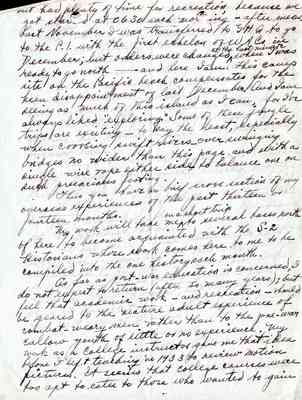 out had plenty of time for recreation, because we
got started at 0630 each morning - after mess
but November I was transferred to 5th H.Q. to go
to the P.I. with the first echelon of
December; but orders were changed, I was
ready to go north and here I am, this camp
site on the Pacific beach compensates for the
keen disappointment of last December. And I am
seeing as much of this island as I can, for I've
always liked 'exploring'. Some of these jeep
trips are exciting - to say the least, especially
when crossing swift rivers over swinging
bridges no wider than this page and with a
single wire rope on the side to balance one on
such precarious footing.
Thus you have a brief cross section of my
overseas experiences of the past thirteen
fourteen months.
My work will take me to several bases north
of here to become acquainted with the S-2
Historians whose work comes here to me to be
compiled into the one history each month.
As far as post-war education is concerned, I
do not expect to return (after so many years); but
feel that academic work - and recreation - should
be geared to the mature adult experience of
combat-weary men rather than to the pre-war
callow youth of little or no experience. My
work as a college instructor gave me that idea
before I left teaching in 1933 to review motion
pictures. It seems that college courses were
too apt to cater to those who wanted to gain